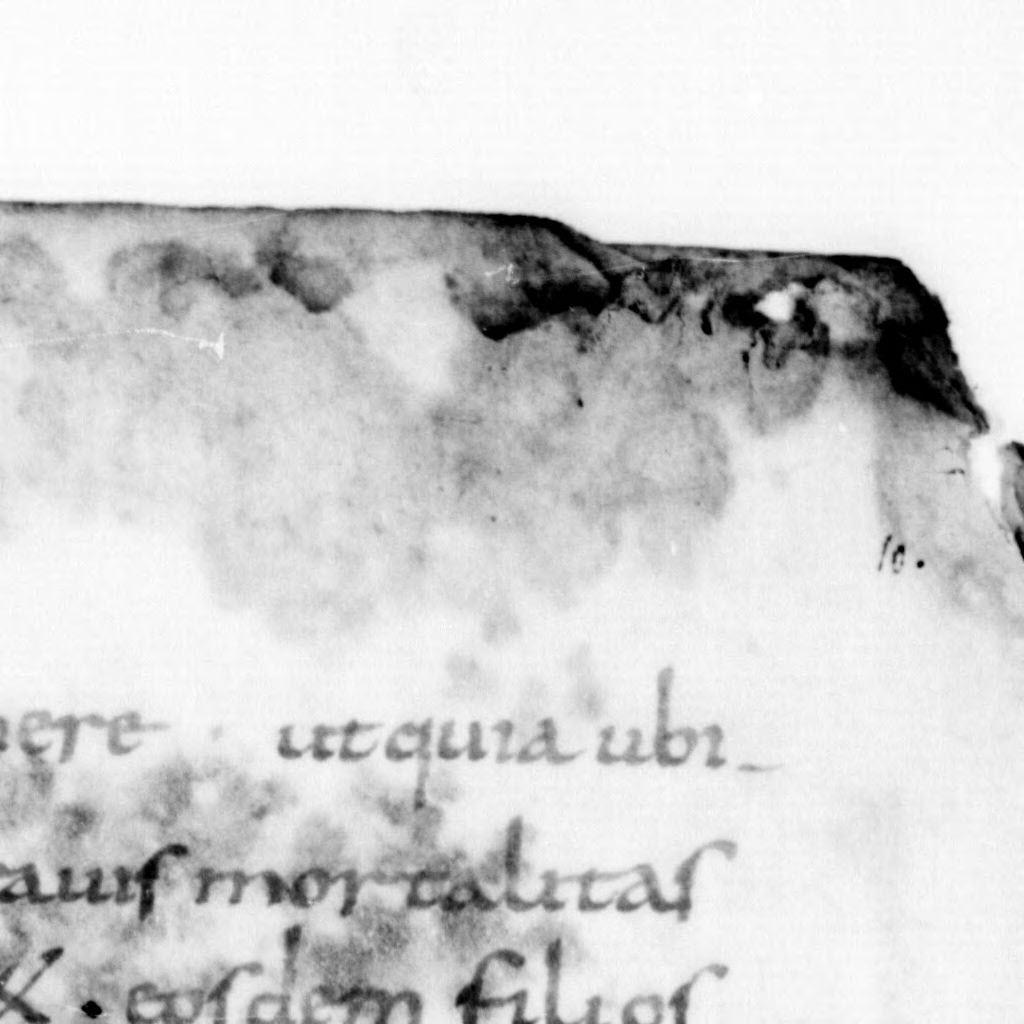 10.
nere · ut quia ubi_
rauis mortalitas
X · eosdem filios